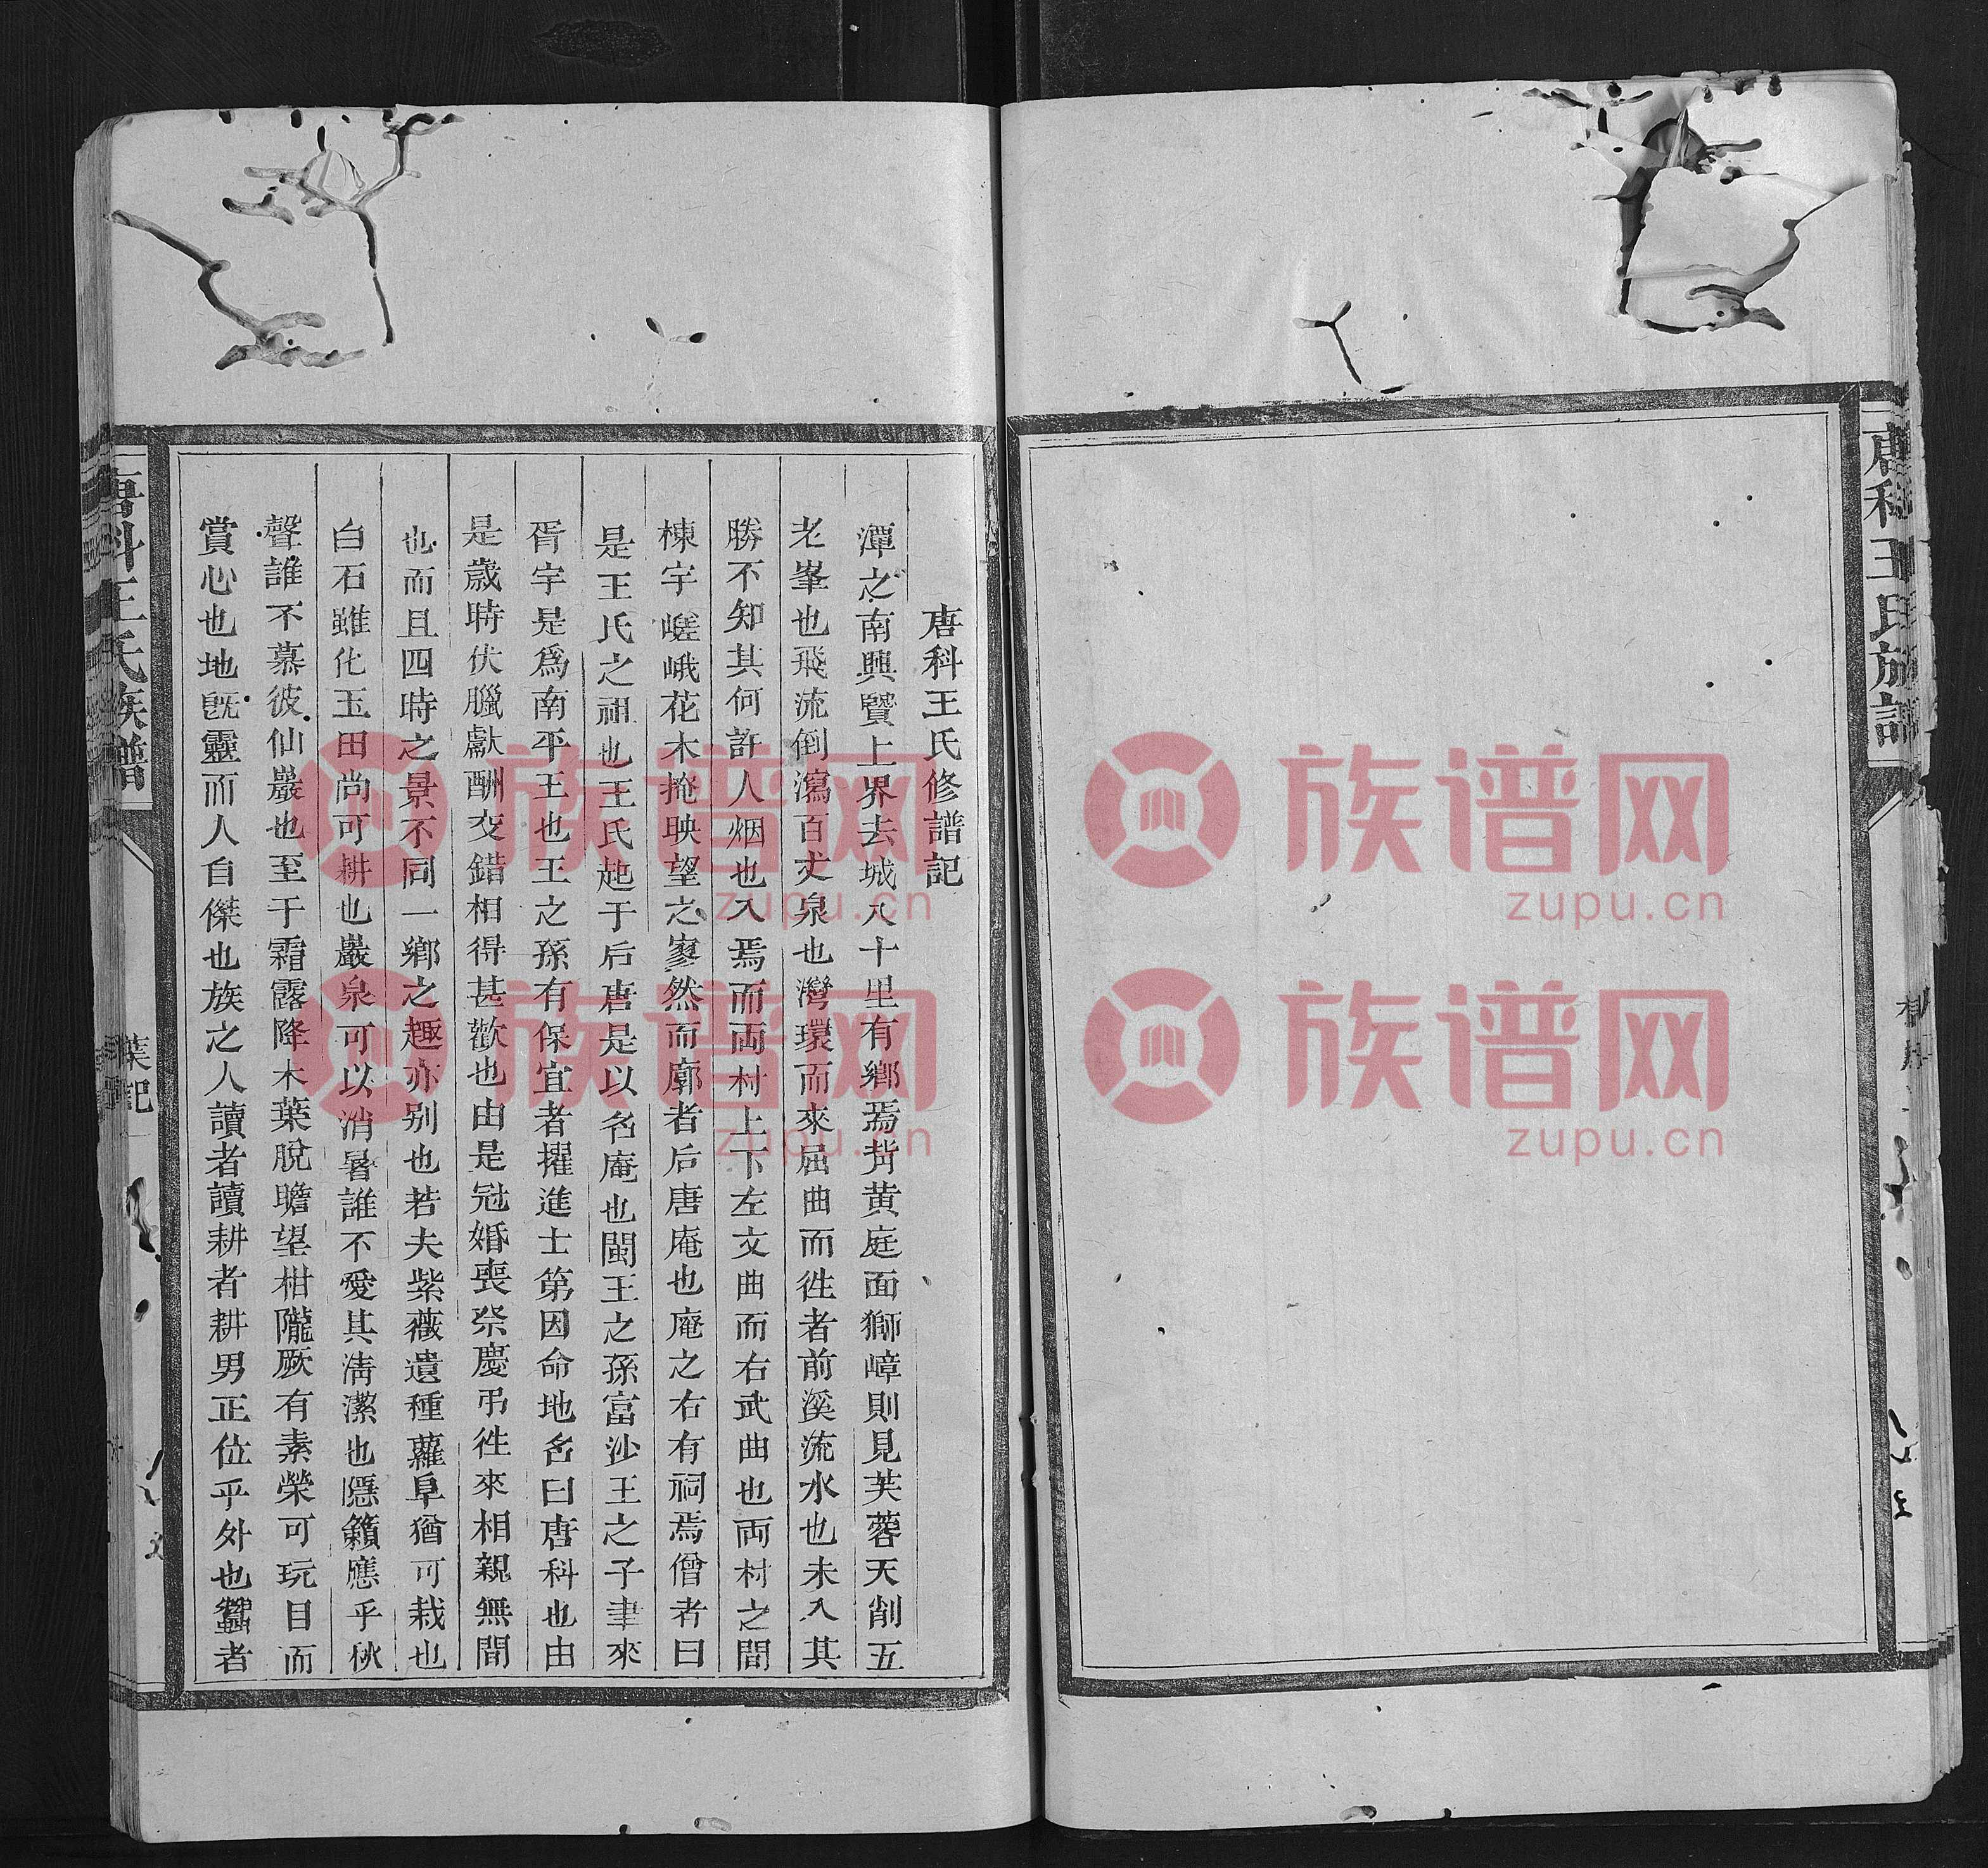 唐科王氏族譜
唐科王氏修譜記
潭之南興賢上界去城八十里有鄉焉背黃庭面獅嶂則見芙蓉天削五
老峯也飛流倒瀉百丈泉也灣環而來屈曲而徃者前溪流水也未入其
勝不知其何許人烟也入焉而両村上下左文曲而右武曲也両村之間
棟宇嵯峨花木掩映望之寥然而廓者后唐庵也庵之右有祠焉僧者曰
是王氏之祖也王氏起于后唐是以名庵也閩王之孫富沙王之子聿來
胥宇是爲南平王也王之孫有保宜者擢進士第因命地名曰唐科也由
是歲時伏臘獻酬交錯相得甚歡也由是冠婚喪祭慶弔徃來相親無間
也而且四時之景不同一鄉之趣亦别也若夫紫薇遺種蘿阜猶可栽也
白石雖化玉田尚可耕也嚴泉可以消暑誰不愛其清潔也隱籟應乎秋
聲誰不慕彼仙巖也至于霜露降木葉脫瞻望柑隴厥有素榮可玩目而
賞心也地旣靈而人自傑也族之人讀者讀耕者耕男正位乎外也蠶者
唐科王氏族譜
記
族谱网
zupu.cn
族谱网
zupu.cn
族谱网
zupu.cn
族谱网
zupu.cn